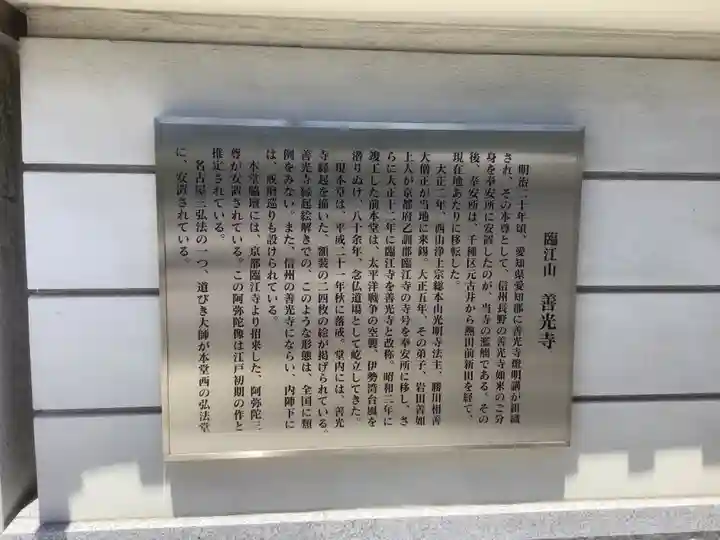 臨江山 善光寺
明治二十年頃、愛知県愛知郡に善光寺燈明講が組織
され、その本尊として、信州長野の善光寺如来のご分
身を奉安所に安置したのが、当寺の濫觴である。その
後、奉安所は、千種区元古井から熱田前新田を経て、
現在地あたりに移転した。
大正二年、西山浄土宗総本山光明寺法主、勝川相善
大僧正が当地に来錫。大正五年、その弟子、岩田善如
上人が京都府乙訓郡臨江寺の寺号を奉安所に移し、さ
らに大正十二年に臨江寺を善光寺と改称。昭和二年に
竣工した前本堂は、太平洋戦争の空襲、伊勢湾台風を
潜りぬけ、八十余年、念仏道場として屹立してきた。
現本堂は、平成二十一年秋に落成。堂内には、善光
寺縁起を描いた、額装の二四枚の絵が掲げられている。
善光寺縁起絵解きでの、このような形態は、全国に類
例をみない。また、信州の善光寺にならい、内陣下に
は、戒壇巡りも設けられている。
本堂脇壇には、京都臨江寺より招来した、阿弥陀三
尊が安置されている。この阿弥陀像は江戸初期の作と
推定されている。
名古屋三弘法の一つ、道びき大師が本堂西の弘法堂
に、安置されている。